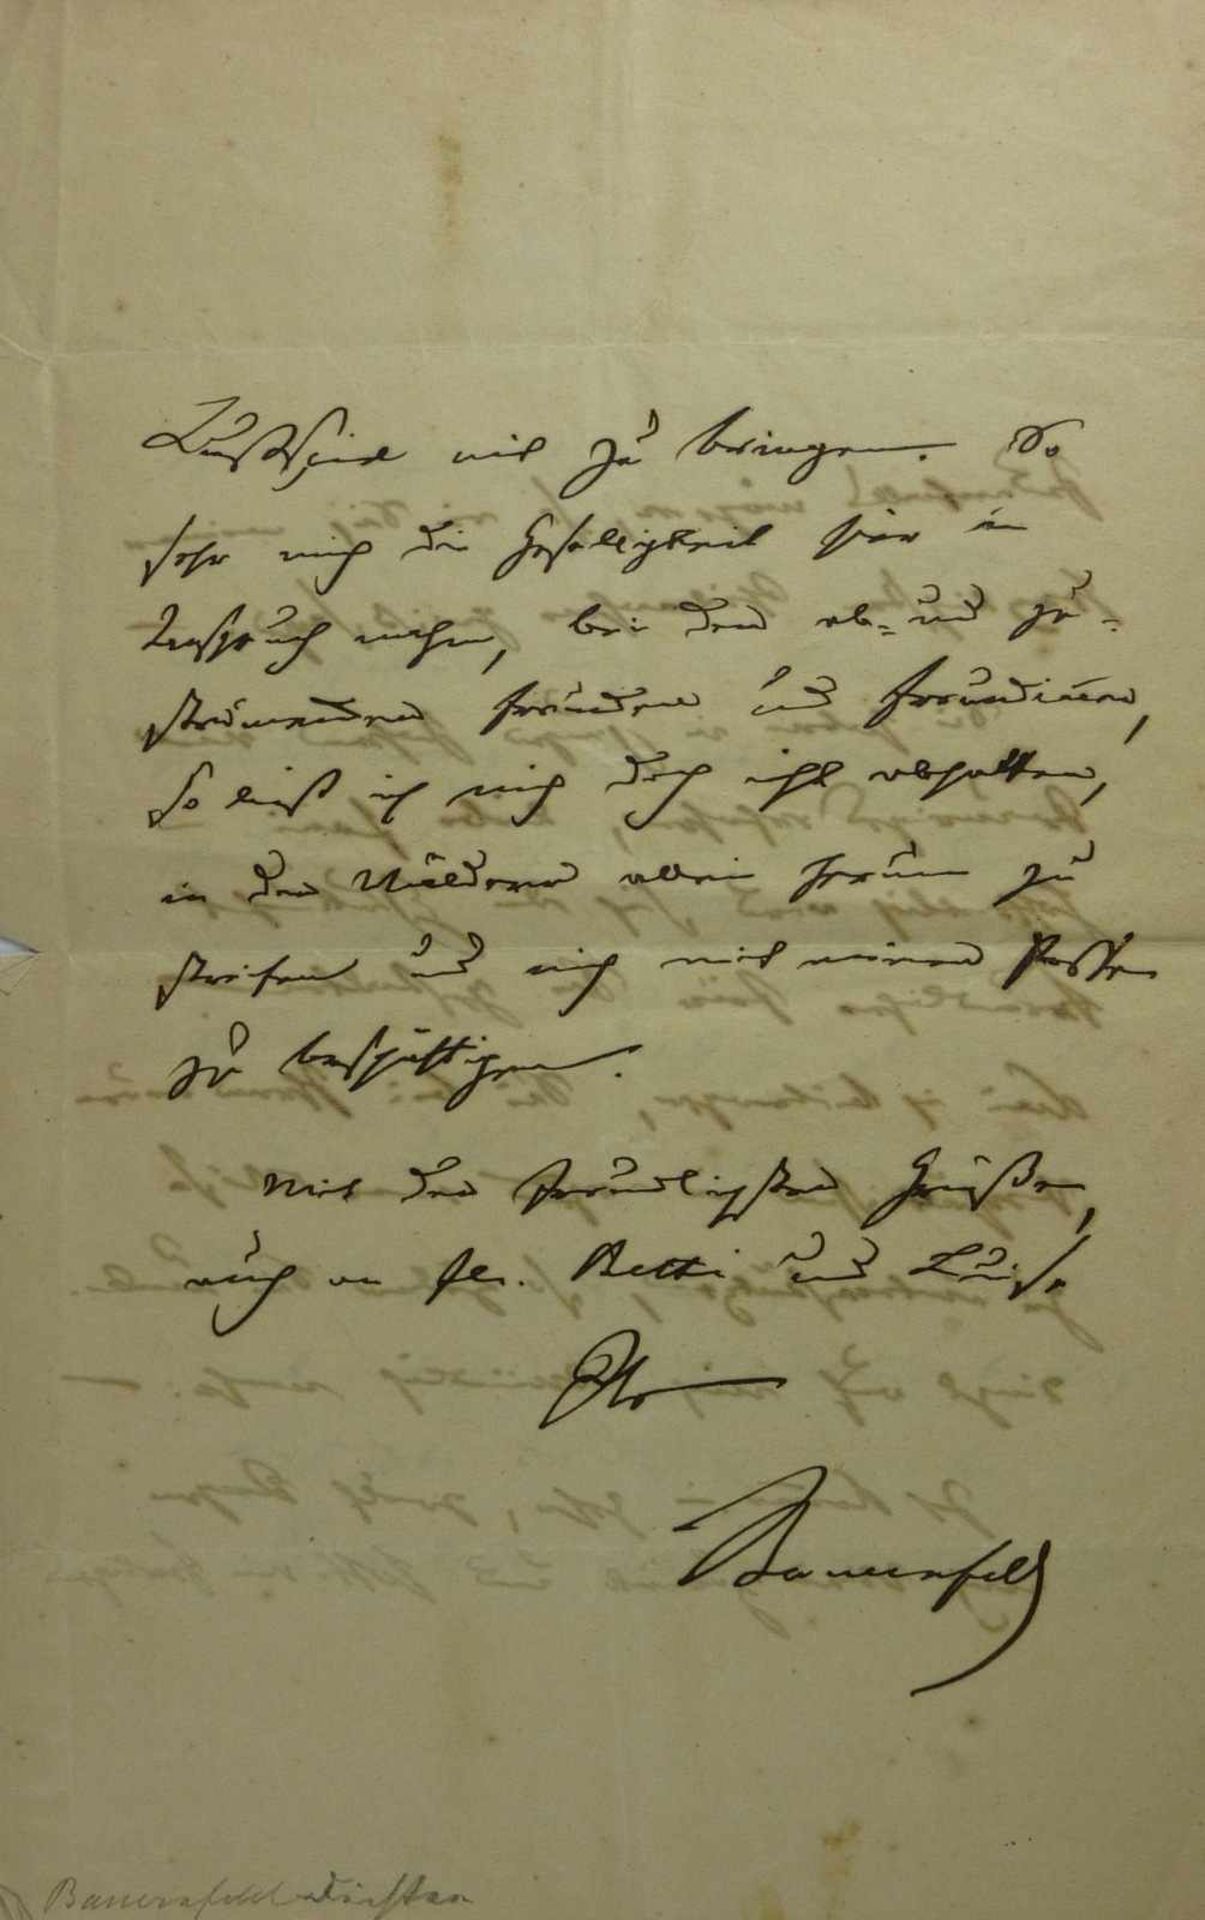 Lustspiel mit zu bringen. So
sehr mich die Geselligkeit hier in
Anspruch nahm, bei den ab- und zu-
strömenden Freunden und Freundinnen,
so ließ ich mich doch nicht abhalten,
in den Wäldern allein herum zu
streifen und mich mit meinen Possen
zu beschäftigen.
Mit den freundlichsten Grüßen,
auch an Frl. Betti und Luise
Ihr
Bauernfeld
Bauernfeld Dichter